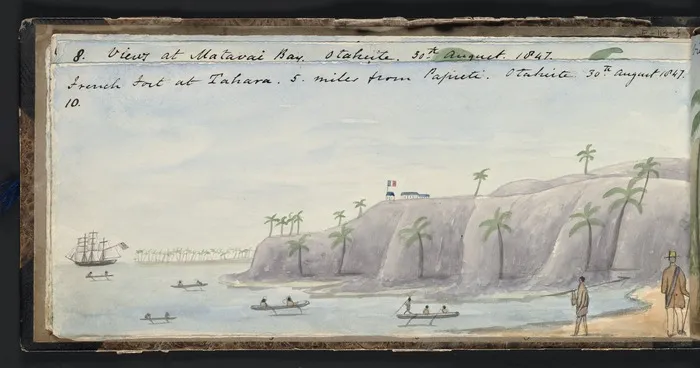 8. Views at Matavai Bay. Otaheite. 30th August. 1847.
French Fort at Tahara. 5. miles from Papieti. Otaheite 30th August 1847.
10.